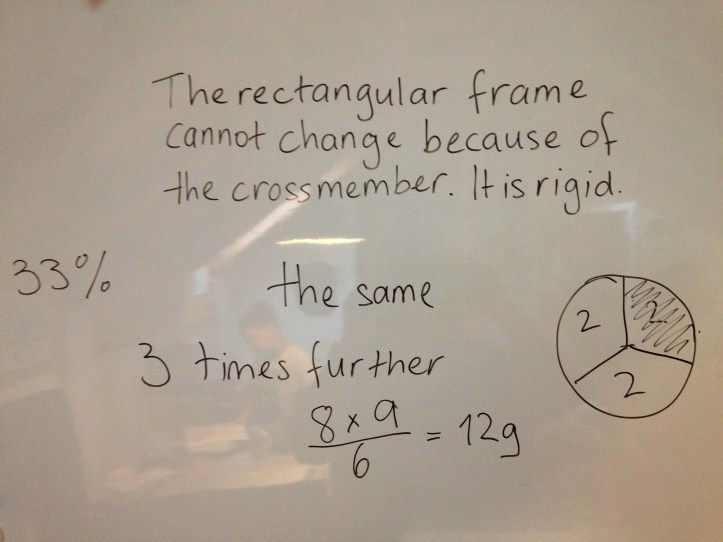 The rectangular frame
cannot change because of
the crossmember. It is rigid.
33%
the same
3 times further
8 x 9
6
= 12g
2
2
2